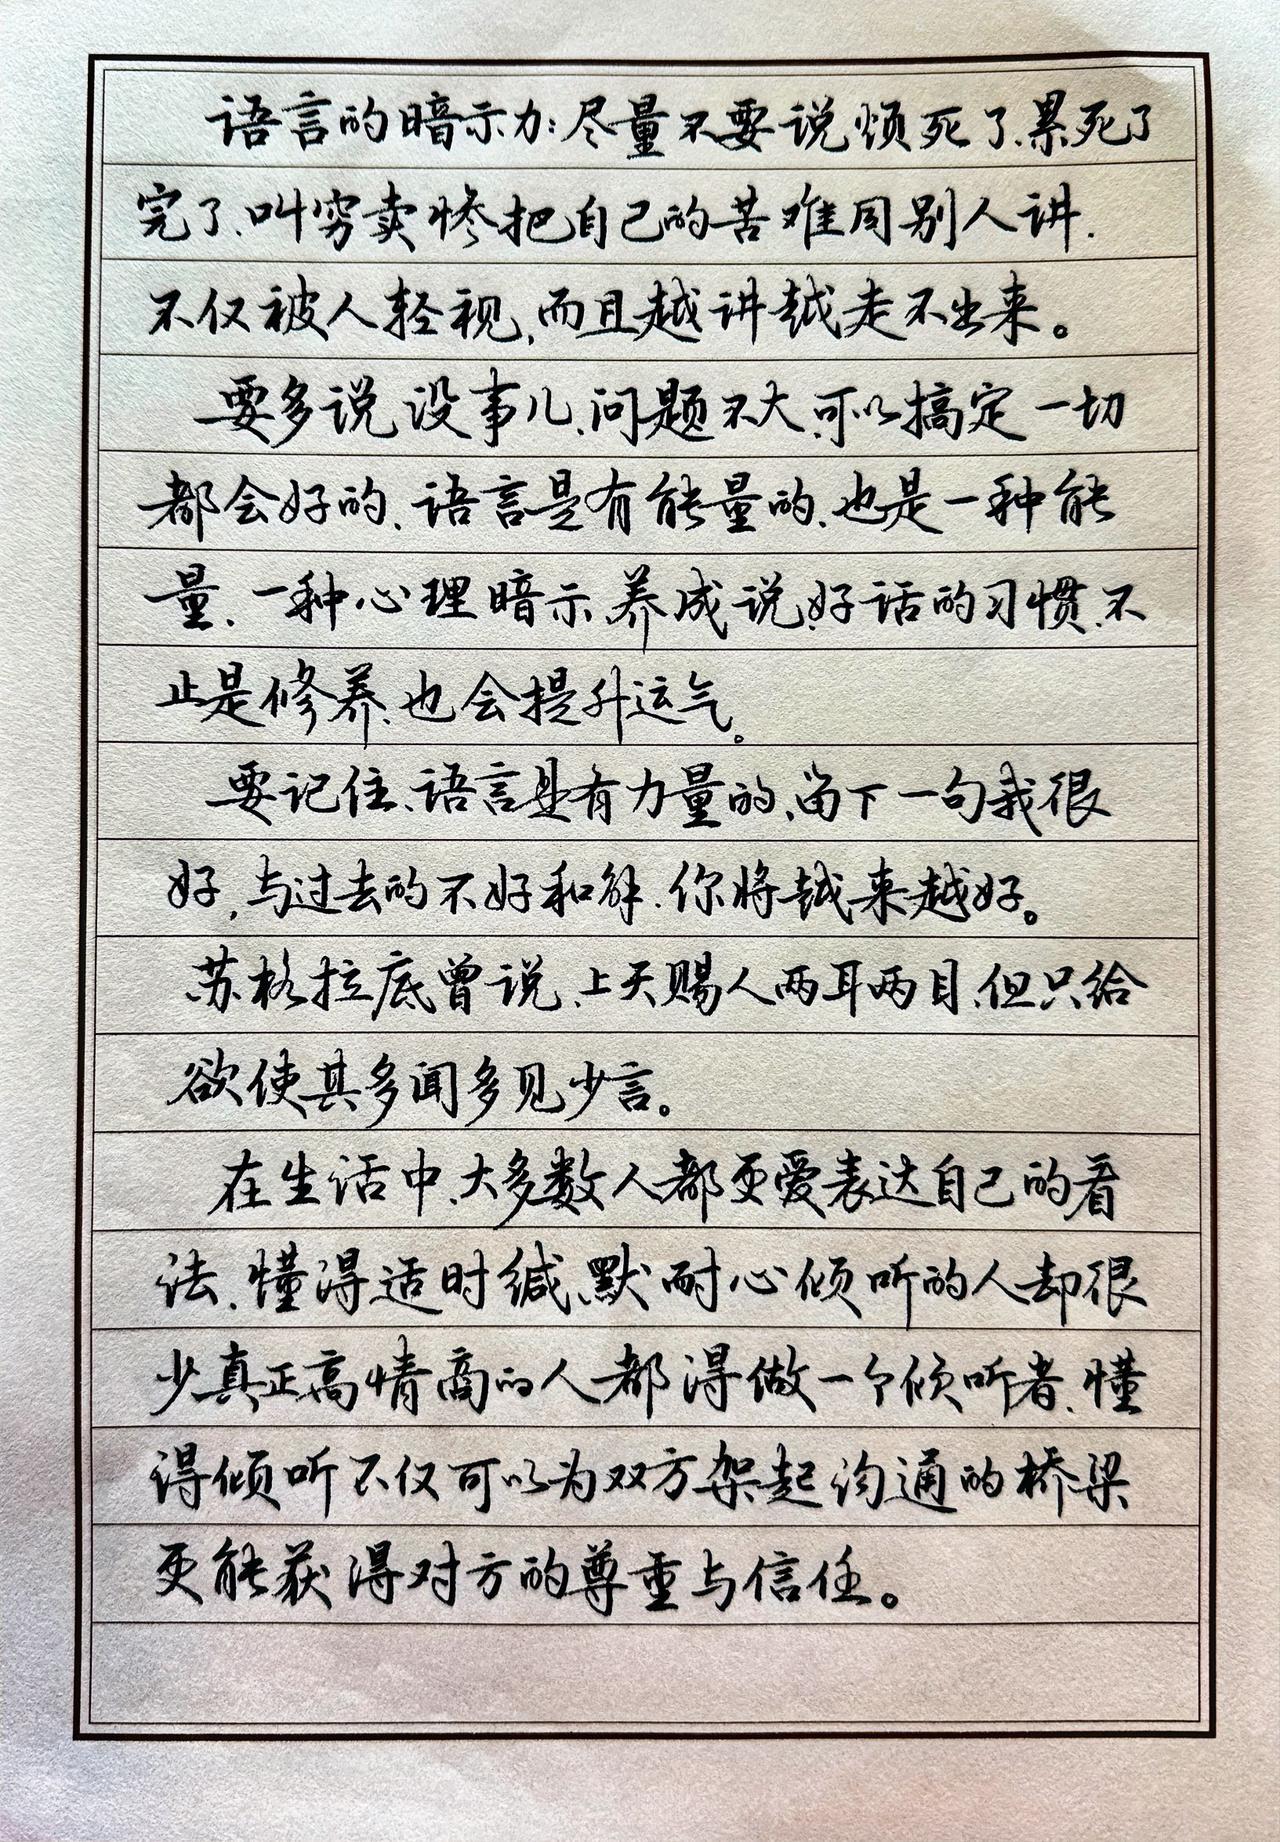 语言的暗示力:尽量不要说烦死了、累死了
完了、叫穷卖惨把自己的苦难同别人讲.
不仅被人轻视,而且越讲越走不出来。
要多说没事儿、问题不大、可以搞定一切
都会好的、语言是有能量的、也是一种能
量、一种心理暗示、养成说好话的习惯、不
止是修养、也会提升运气。
要记住、语言是有力量的、留下一句我很
好,与过去的不好和解、你将越来越好。
苏格拉底曾说、上天赐人两耳两目、但只给
欲使其多闻多见少言。
在生活中、大多数人都更爱表达自己的看
法、懂得适时缄默、耐心倾听的人却很
少真正高情商的人都得做一个倾听者、懂
得倾听不仅可以为双方架起沟通的桥梁
更能获得对方的尊重与信任。